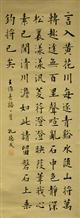 言入黃花川每逐青谿水隨山將萬
轉趣途無百里聲喧亂石中色靜深
松裏漾漾汎菱荇澄澄映葭葦我心
素已閒清川澹如此請留盤石上垂
釣將已矣
王維青谿一首 孔德成